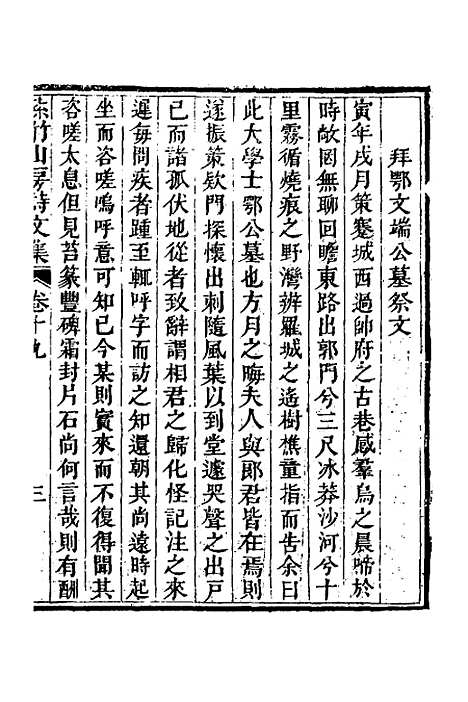 拜鄂文端公墓祭文
寅年戌月策蹇城西過帥府之古巷感羣烏之晨啼於
時敧困無聊回瞻東路出郭門兮三尺冰莽沙河兮十
里霧循燒痕之野灣辨羅城之遙樹樵童指而告余曰
此大學士鄂公墓也方月之晦夫人與郞君皆在焉則
遂振策欸門探懷出刺隨風葉以到堂遽哭聲之出戸
已而諸孤伏地從者致辭謂相君之歸化怪記注之來
遲每問疾者踵至輒呼字而訪之知還朝其尚遠時起
坐而咨嗟嗚呼意可知已今某則賓來而不復得聞其
咨嗟太息但見苔篆豐碑霜封片石尚何言哉則有酬
紫竹山房詩文集 卷十九 三